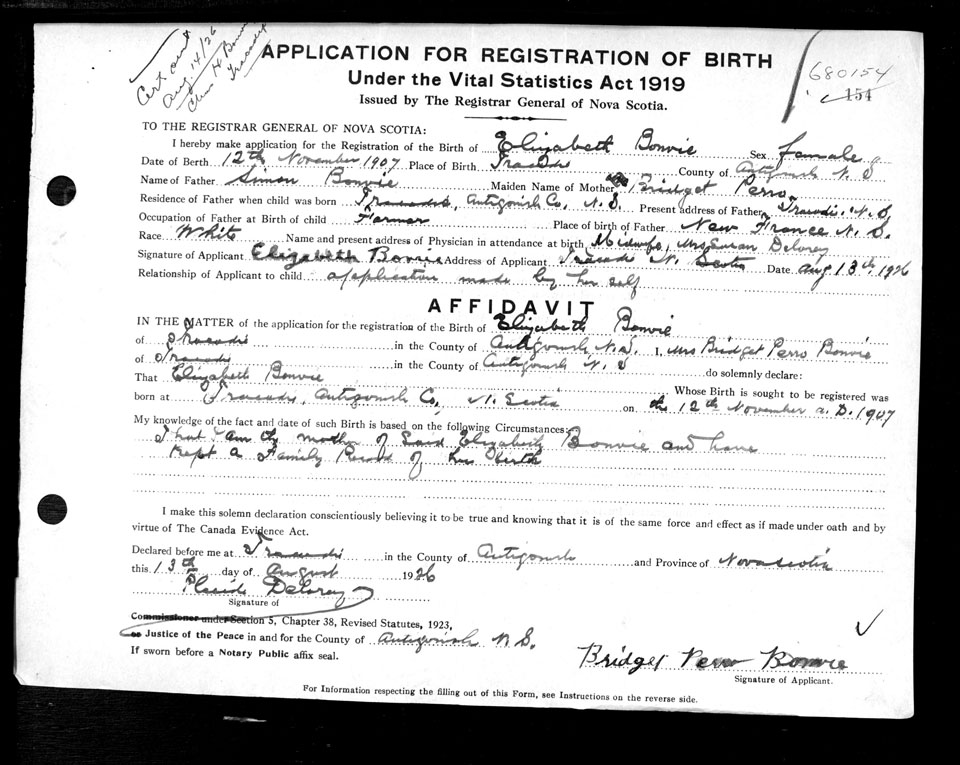 Cert sent
Aug. 14/26
Chas H Bonvie
Tracadie
APPLICATION FOR REGISTRATION OF BIRTH
Under the Vital Statistics Act 1919
Issued by The Registrar General of Nova Scotia.
680154
154
TO THE REGISTRAR GENERAL OF NOVA SCOTIA:
I hereby make application for the Registration of the Birth of Elizabeth Bonvie Sex female
Date of Birth 12th November 1907 Place of Birth Tracadie County of Antigonish N. S
Name of Father Simon Bonvie Maiden Name of Mother Bridget Perro
Residence of Father when child was born Tracadie, Antigonish Co, N. S. Present address of Father Tracadie N. S
Occupation of Father at Birth of child Farmer Place of birth of Father New France N. S.
Race White Name and present address of Physician in attendance at birth Midwife, Mrs Susan Delorey
Signature of Applicant Elizabeth Bonvie Address of Applicant Tracadie N. Scotia Date Aug 13th, 1926
Relationship of Applicant to child application made by her self
AFFIDAVIT
IN THE MATTER of the application for the registration of the Birth of Elizabeth Bonvie
of Tracadie in the County of Antigonish N.S. I, Mrs Bridget Perro Bonvie
of Tracadie in the County of Antigonish N. S do solemnly declare:
That Elizabeth Bonvie Whose Birth is sought to be registered was
born at Tracadie, Antigonish Co, N. Scotia on the 12th November A. D. 1907
My knowledge of the fact and date of such Birth is based on the following Circumstances:
That I am the mother of Said Elizabeth Bonvie and have
Kept a Family Record of her birth
I make this solemn declaration conscientiously believing it to be true and knowing that it is of the same force and effect as if made under oath and by
virtue of The Canada Evidence Act.
Declared before me at Tracadie in the County of Antigonish and Province of Nova Scotia
this 13th day of August 1926
Placide Delorey
Signature of
Commissioner under Section 5, Chapter 38, Revised Statutes, 1923,
or Justice of the Peace in and for the County of Antigonish N. S.
If sworn before a Notary Public affix seal.
Bridget Perro Bonvie
Signature of Applicant.
For Information respecting the filling out of this Form, see Instructions on the reverse side.